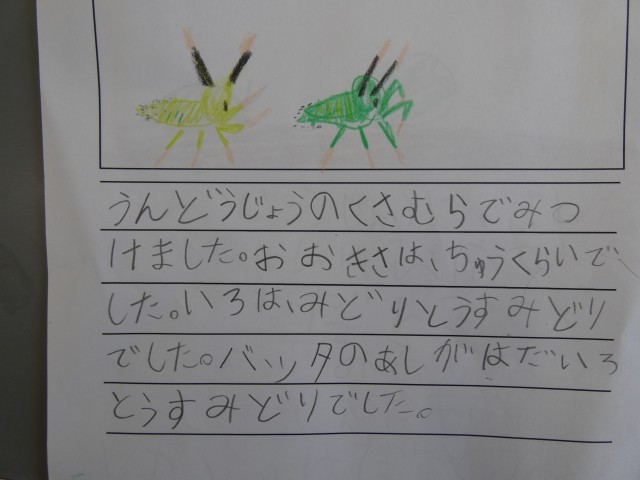 うんどうじょうのくさむらでみつ
けました。おおきさは、ちゅうくらいで
した。いろは、みどりとうすみどり
でした。バッタのあしがはだいろ
とうすみどりでした。